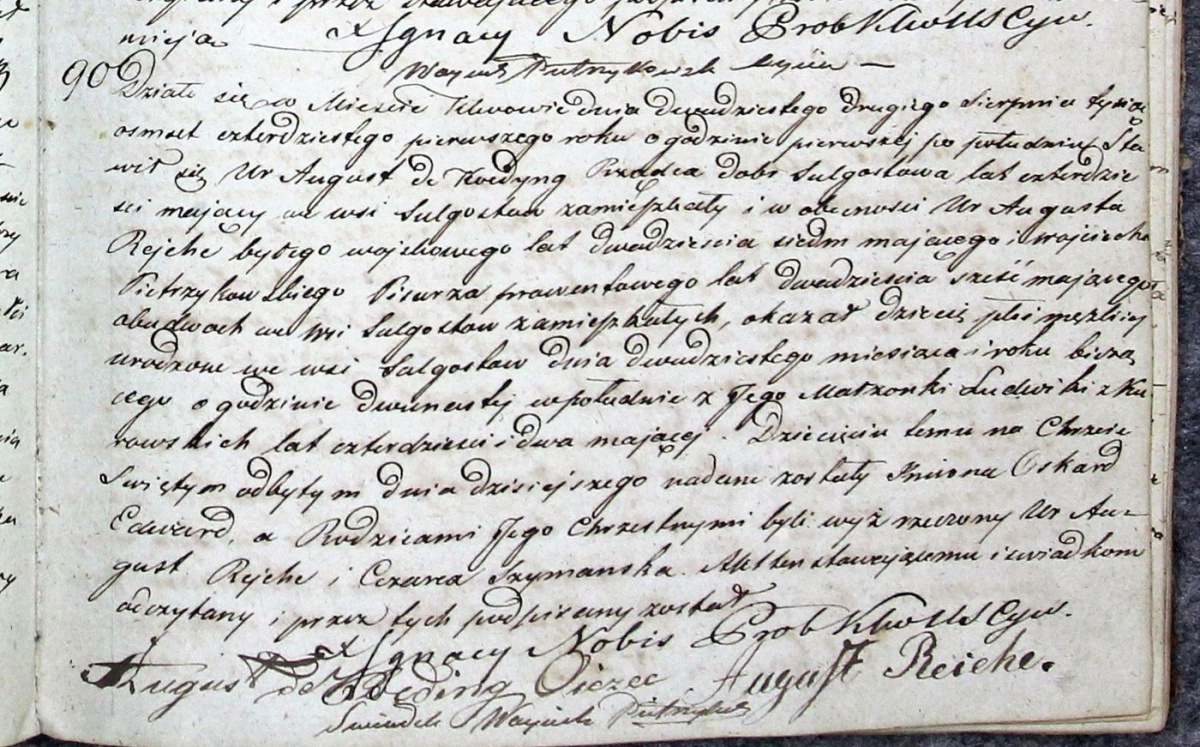 nieja X Ignacy Nobis Prob Kllw USCyw.
Wojciech Pietrzykowski
90 Działo się w Mieście dnia dwudziestego drugiego Sierpnia tysiąc
osmset czterdziestego pierwszego roku o godzinie pierwszej po południu Sta
wił się Ur August de Koedyng Rządca dobr Sulgostowa lat czterdzie
sci maiący we wsi Sulgostow zamieszkały i w obecności Ur Augusta
Rejche byłego wojskowego lat dwadziescia siedm mającego i Wojciecha
Pietrzykowskiego Pisarza prowentowego lat dwadziescia sześć mającego
obudwoch we wsi Sulgostow zamieszkałych, okazał dziecię płci męzkiej
urodzone we wsi Sulgostow dnia dwudziestego miesiąca i roku bieżą
cego o godzinie dwunastej w południe z Jego Małzonki Ludwiki z Ku
rowskich lat czterdziesci i dwa mającej. Dziecięciu temu na Chrzcie
Swiętym odbytym dnia dzisiejszego nadane zostały Imiona Oskard
Edward, a Rodzicami Jego Chrzestnymi byli wyż rzeczony Ur Au-
gust Rejche i Cezarea Szymanska. Akt ten stawającemu i swiadkom
odczytany i przez tych podpisany został
X Ignacy Nobis Prob Kllw USCyw.
August de Kęding Oiciec August Reiche.
Swiadek Wojciech Pietrzykowski